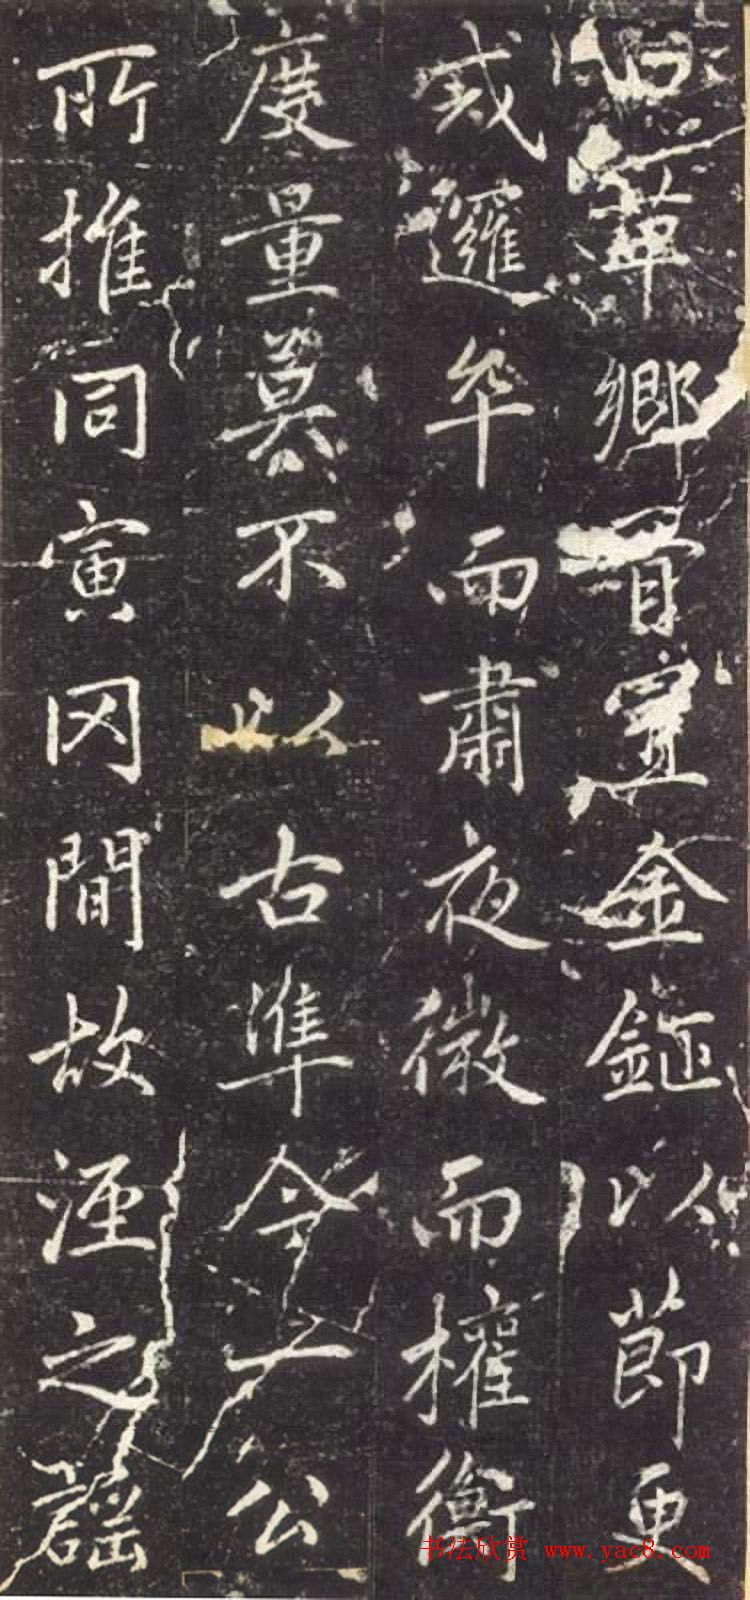 革鄉胥置金鉦以節更
戍邏卒而肅夜徼而權衡
度量莫不以古準今一公
所推同寅罔間故洭之謡
书法欣赏 www.yac8.com